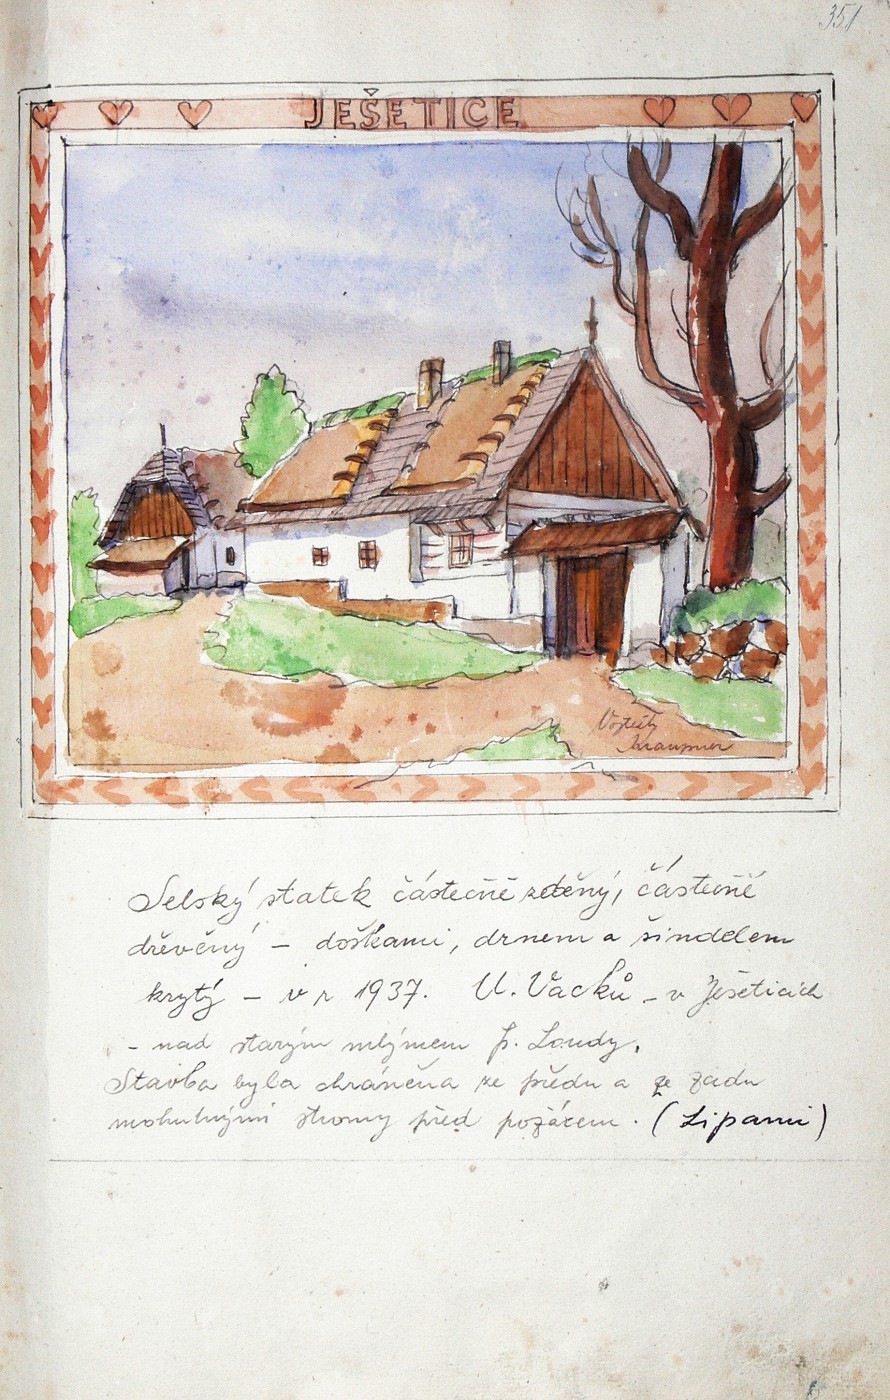 351
JEŠETICE
Vojtěch
Kraupner
Selský statek částečně zděný, částečně
dřevěný – doškami, drnem a šindelem
krytý – v r 1937. U. Vacků – v Ješeticích
– nad starým mlýnem p. Loudy.
Stavba byla chráněna ze předu a ze zadu
mohutnými stromy před požárem. (Lipami)